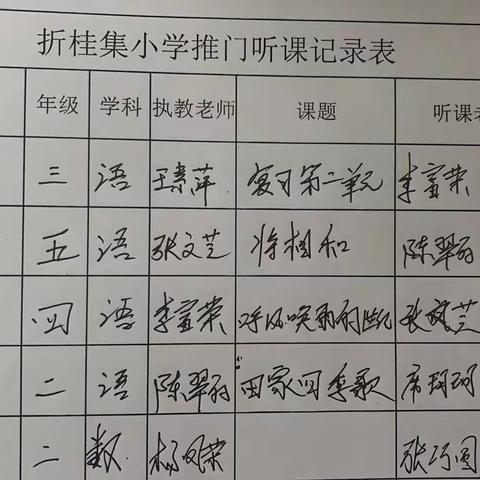 折桂集小学推门听课记录表
年级 学科 执教老师 课题 听课老
三 语 王素萍 复习第二单元 李富荣
五 语 张文芝 将相和 陈翠丽
四 语 李富荣 呼风唤雨的世纪 张文芝
二 语 陈翠丽 田家四季歌 席
二 数 杨凤荣 张巧圆